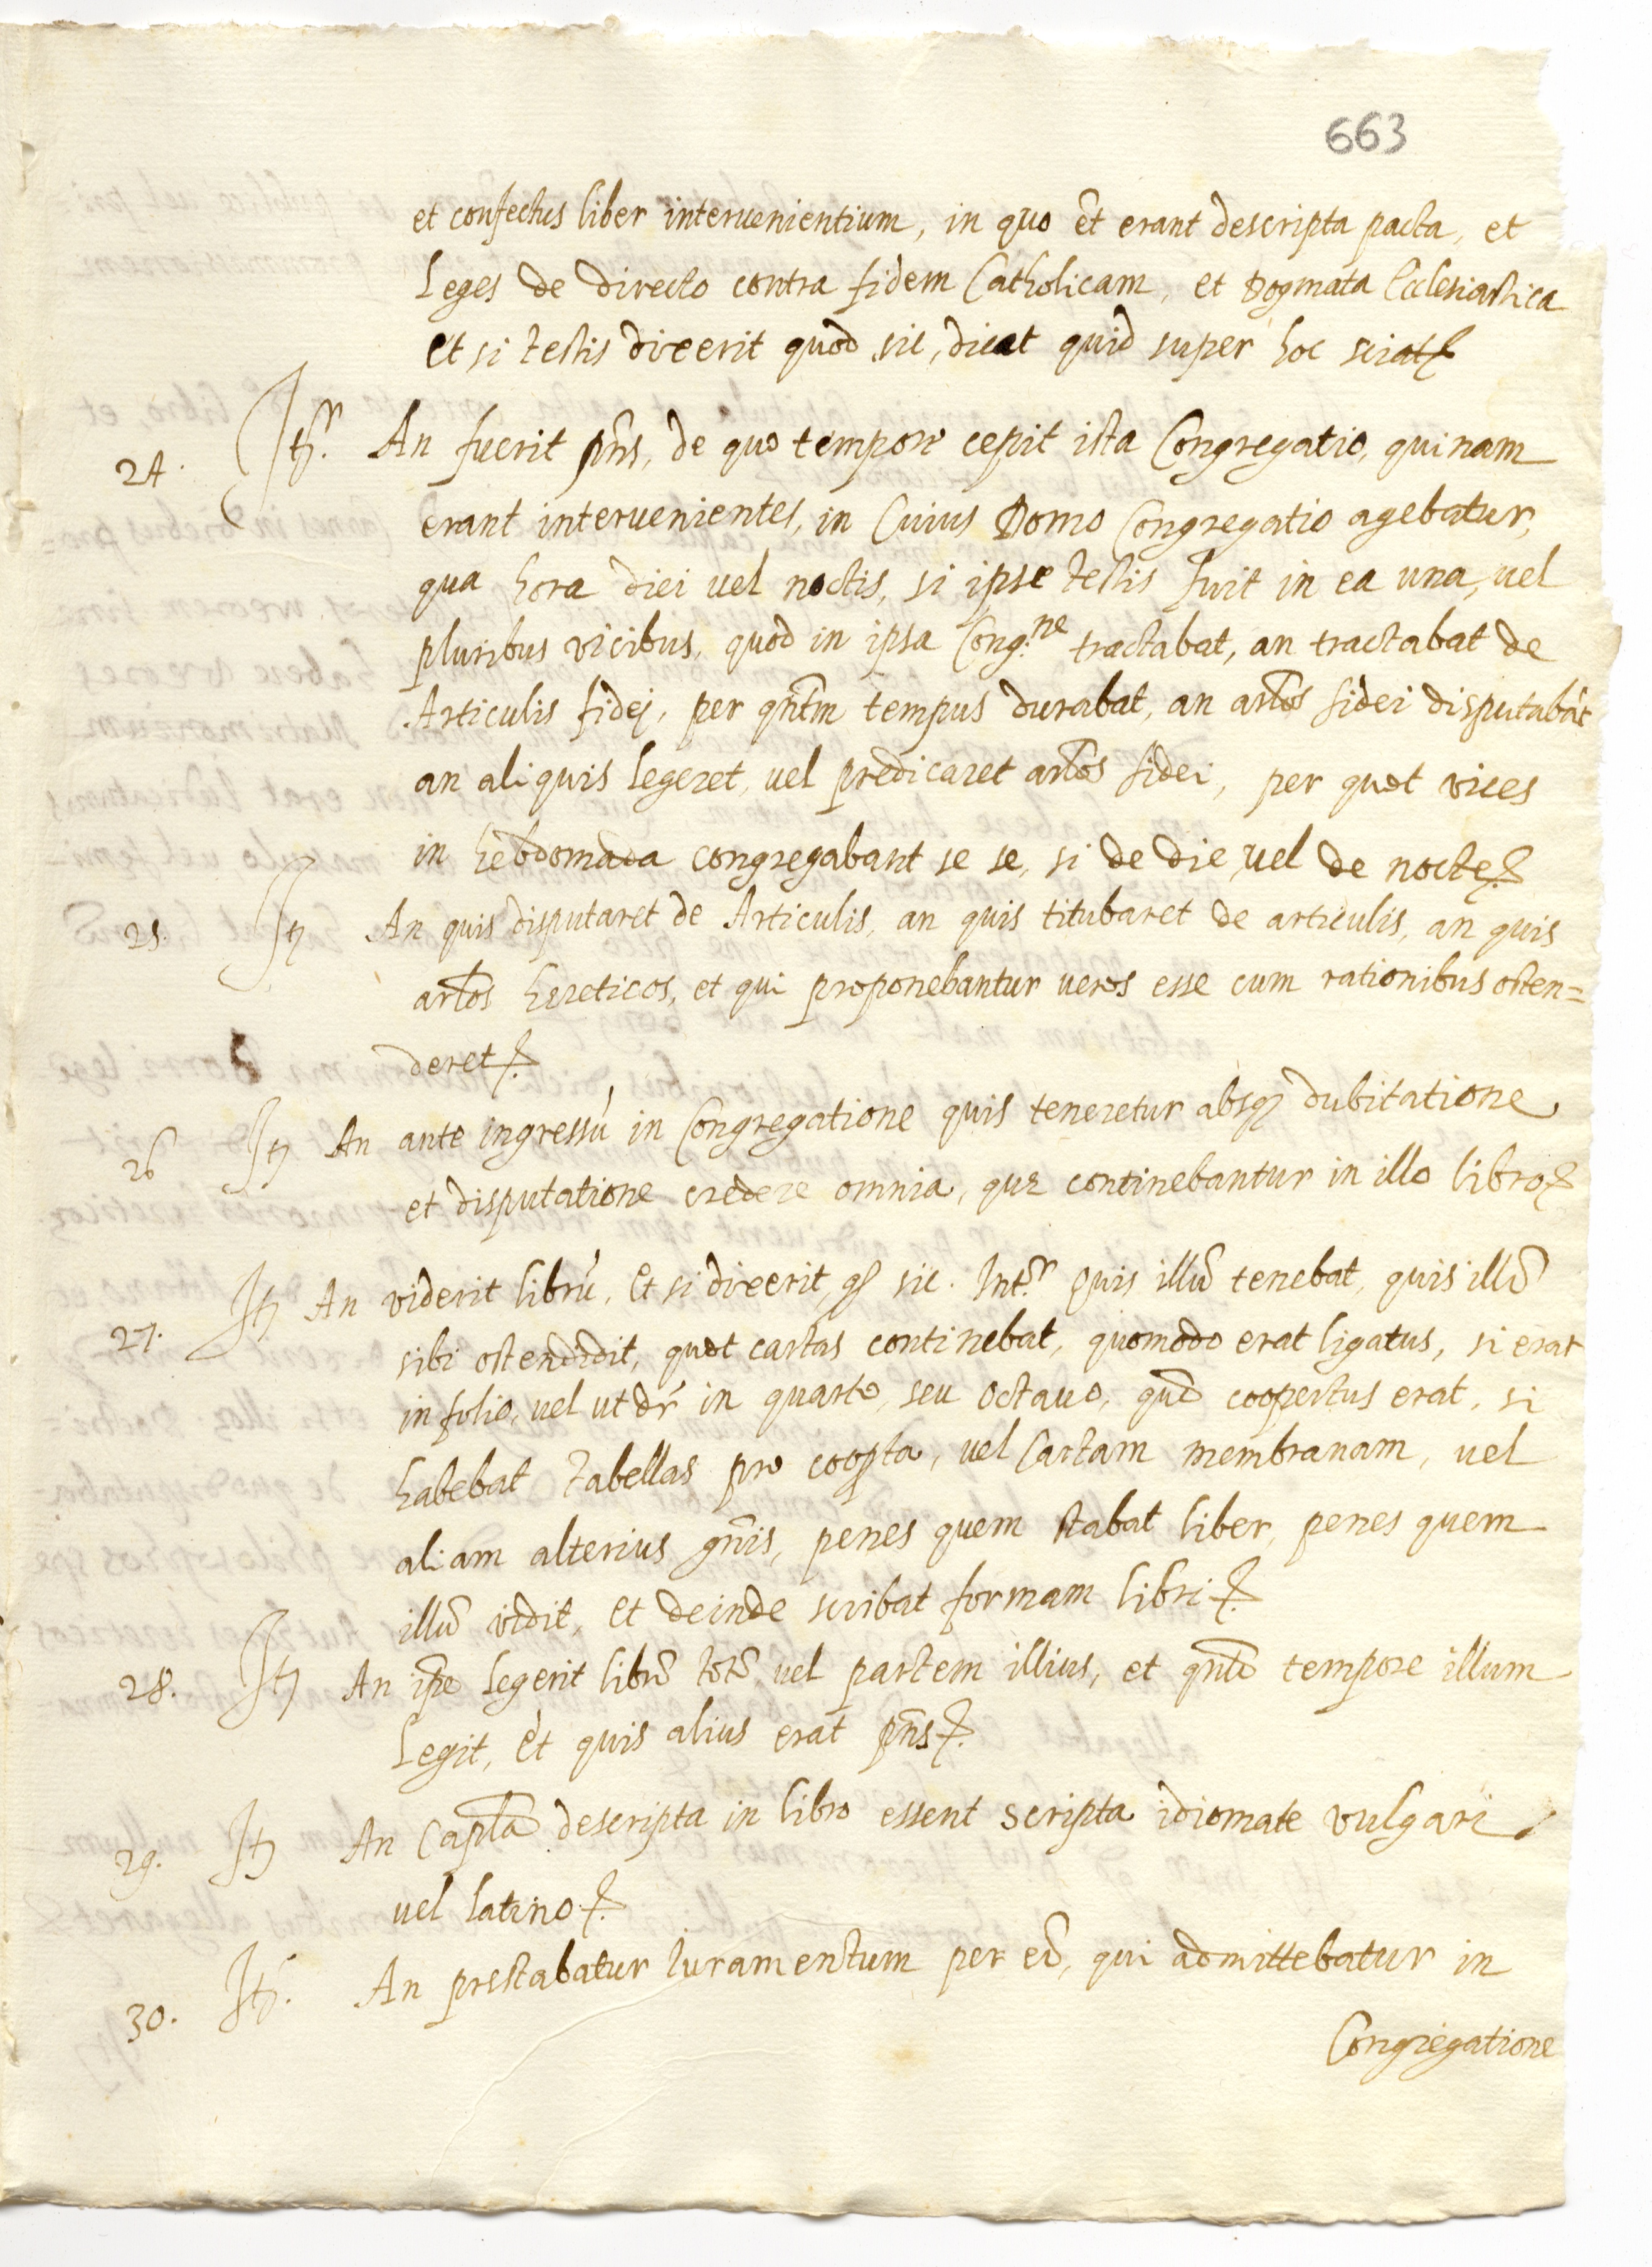 663
et confectus liber interuenientium, in quo et̃ erant descripta pacta, et
Leges de directo contra fidem Catholicam, et Dogmata Ecclesiastica
et si testis dixerit quod sic, dicat quid super hoc sciat
24. It.ʳ An fuerit pñs, de quo tempore cepit ista Congregatio, quinam
erant interuenientes, in Cuius Domo Congregatio agebatur,
qua hora diei vel noctis, si ipse testis fuit in ea una, vel
pluribus vicibus, quod in ipsa Cong.ⁿᵉ tractabat, an tractabat de
Articulis fidej, per qñtm tempus durabat, an artlos fidei disputabãt
an aliquis Legeret, vel predicaret artlos fidei, per quot vices
in hebdomada congregabant se se, si de die, vel de nocte
25. It An quis disputaret de Articulis, an quis titubaret de articulis, an quis
artlos hereticos, et qui proponebantur ueros esse cum rationibus osten=
deret
26 It An ante ingressũ in Congregatione quis teneretur absq dubitatione
et disputatione credere omnia, que continebantur in illo libro
27. It An viderit librũ, et si dixerit, q̃ sic. Int.ʳ quis illũ tenebat, quis illũ
sibi ostendidit, quot cartas continebat, quomodo erat ligatus, si erat
in folio, vel ut dr̃ in quarto, seu octauo, quõ coopertus erat, si
habebat tabellas pro coopta, vel Cartam membranam, vel
aliam alterius gñis, penes quem stabat liber, penes quem
illũ vidit, et deinde scribat formam libri
28. It An ipe Legerit librũ totũ, vel partem illius, et qñto tempore illum
Legit, et quis alius erat pñs
29. It An Capla descripta in libro essent scripta idiomate vulgari
uel latino
30. It. An prestabatur Iuramentum per eũ, qui admittebatur in
Congregatione